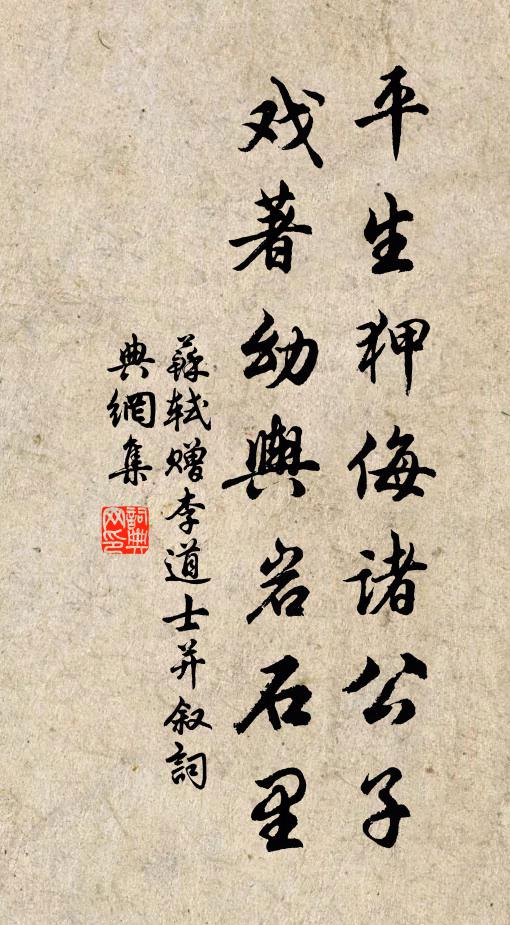 平生狎侮诸公子
戏著幼舆岩石里
蘇軾赠李道士并叙詞
典網集
詞典网印